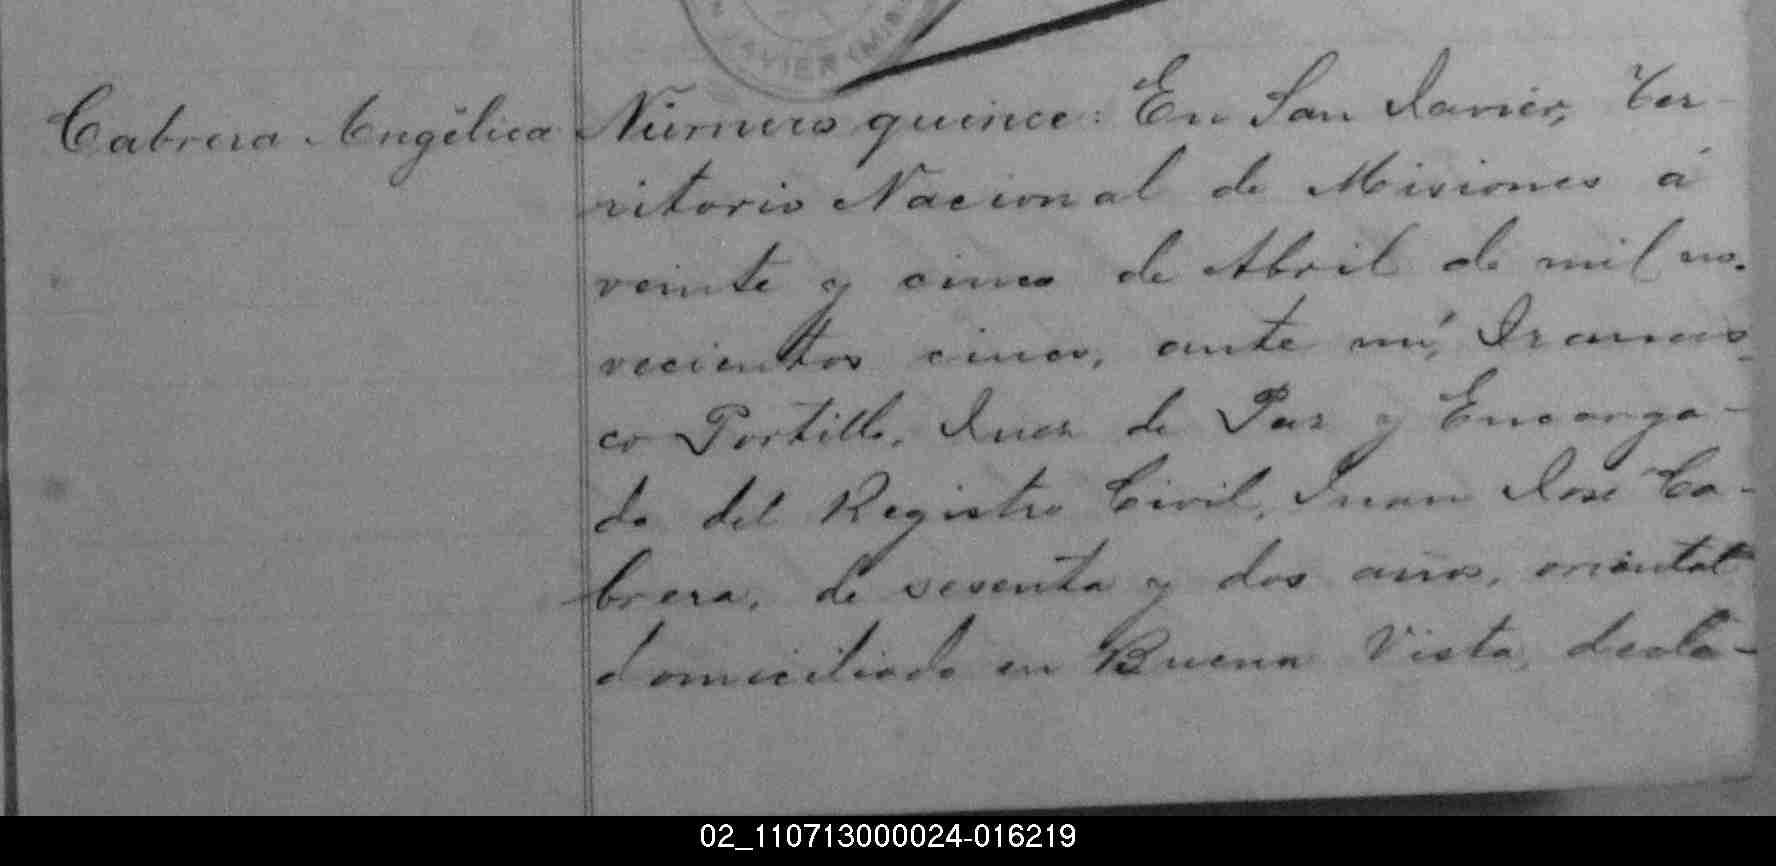 JAVIER (MIS
Cabrera Angélica
Número quince: En San Javier, Ter-
ritorio Nacional de Misiones á
veinte y cinco de Abril de mil no-
vecientos cinco, ante mí, Francis-
co Portillo, Juez de Paz y Encarga-
do del Registro Civil, Juan José Ca-
brera, de sesenta y dos años, oriental
domiciliado en Buena Vista, decla-
02_110713000024-016219